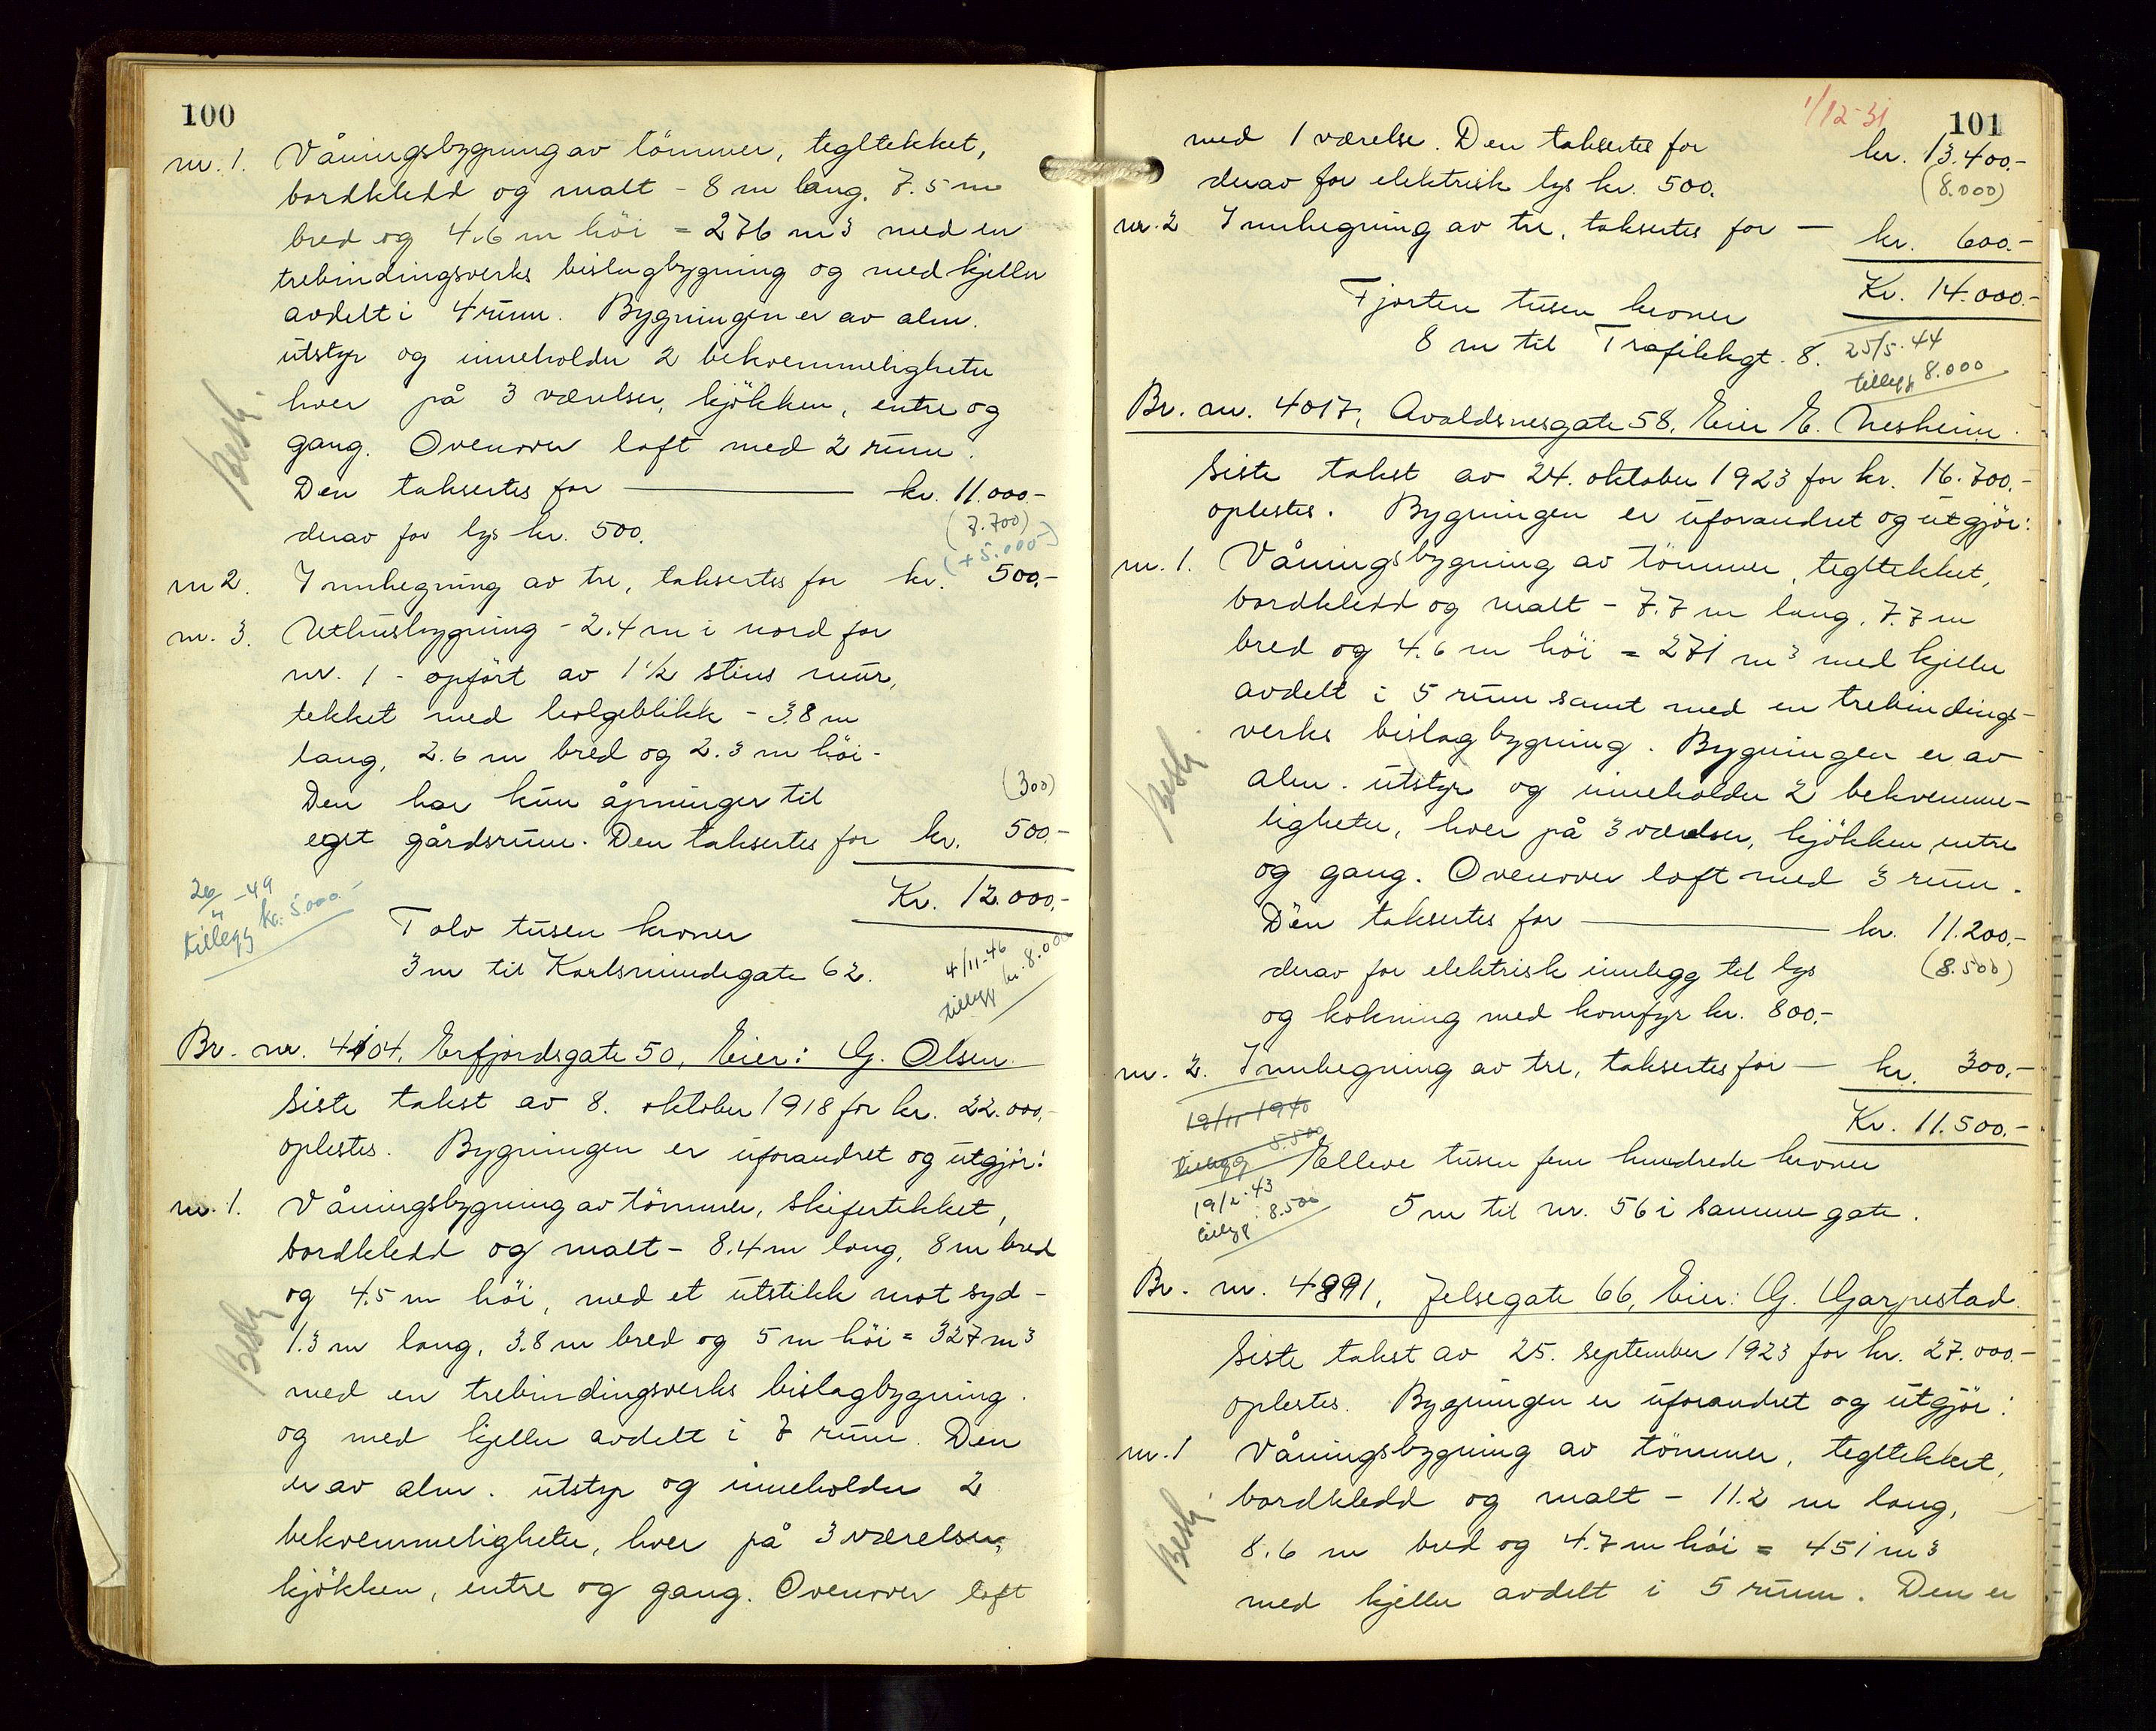 100
nr. 1. Våningsbygning av tömmer, tegltekket,
bordkledd og malt - 8 m lang, 7.5 m
bred og 4.6 m höi = 276 m3 med en
trebindingsverks bislagbygning og med kjeller
avdelt i 4 rum. Bygningen er av alm.
utstyr og inneholder 2 bekvemmeligheter
hver på 3 værelser, kjökken, entre og
gang. Ovenover loft med 2 rum.
Besk.
Den taksertes for — kr. 11.000.-
(7.700)
derav for lys kr. 500.
(+5.000-)
nr 2. Innhegning av tre, taksertes for kr. 500.-
nr. 3. Uthusbygning - 2.4 m i nord for
nr. 1 - opfört av 1 1/2 stins mur,
tekket med bolgeblikk - 3.8 m
lang, 2.6 m bred og 2.3 m höi -
Den har kun åpninger til
(300)
eget gårdsrum. Den taksertes for kr. 500.-
Kr. 12.000.-
26/4 -49
tillegg kr. 5.000.-
Tolv tusen kroner
3 m til Karlsmindegate 62.
4/11-46
tillegg kr. 8.000
Br. nr. 4104, Erfjordsgate 50, Eier: G. Olsen.
Siste takst av 8. oktober 1918 for kr. 22.000.-
oplestes. Bygningen er uforandret og utgjör:
nr. 1. Våningsbygning av tömmer, skifertekket,
bordkledd og malt - 8.4 m lang, 8 m bred
og 4.5 m höi, med et utstikk mot syd -
1.3 m lang, 3.8 m bred og 5 m höi = 327 m3
Besk
med en trebindingsverks bislagbygning.
og med kjeller avdelt i 7 rum. Den
er av alm. utstyr og inneholder 2
bekvemmeligheter, hver på 3 værelser,
kjökken, entre og gang. Ovenover loft
1/12-31
101
med 1 værelse. Den taksertes for kr. 13.400.-
(8.000)
derav for elektrisk lys kr. 500.
nr. 2 Innhegning av tre, taksertes for — kr. 600.-
Kr. 14.000.-
Fjorten tusen kroner
8 m til Trafikkgt. 8.
25/5.44
tillegg 8.000
Br. nr. 4017, Avaldsnesgate 58, Eier E. Nesheim.
Siste takst av 24. oktober 1923 for kr. 16.700.-
oplestes. Bygningen er uforandret og utgjör:
nr. 1. Våningsbygning av tömmer, tegltekket,
bordkledd og malt - 7.7 m lang, 7.7 m
bred og 4.6 m höi = 271 m3 med kjeller
avdelt i 5 rum samt med en trebindings-
verks bislagbygning. Bygningen er av
Besk.
alm. utstyr og inneholder 2 bekvemme-
ligheter, hver på 3 værelser, kjökken, entre
og gang. Ovenover loft med 3 rum.
Den taksertes for — kr. 11.200.-
derav for elektrisk innlegg til lys (8.500)
og kokning med komfyr kr. 800.-
nr. 2. Innhegning av tre, taksertes for — kr. 300.-
Kr. 11.500.-
19/11 1940
tillegg 5.500
Elleve tusen fem hundrede kroner
19/2.43
tillegg 8.500
5 m til nr. 56 i samme gate.
Br. nr. 4991, Jelsegate 66, Eier: G. Garpestad.
Siste takst av 25. september 1923 for kr. 27.000.-
oplestes. Bygningen er uforandret og utgjör:
nr. 1 Våningsbygning av tömmer, tegltekket,
bordkledd og malt - 11.2 m lang,
Besk.
8.6 m bred og 4.7 m höi = 451 m3
med kjeller avdelt i 5 rum. Den er